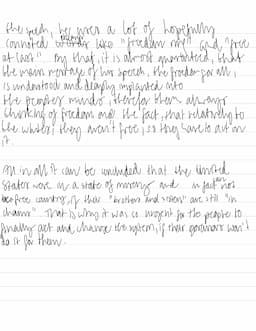 the speech, he uses a lot of hopefully
connoted like "freedom ring" and "free
at last". By that, it is almost guaranteed, that
the main message of his speech, the freedom for all,
is understood and deeply implanted into
the peoples minds, therefor them always
thinking of freedom and the fact, that relatively to
the whites, they aren't free, so they have to act on
it.
All in all it can be concluded that the United
States were in a state of misery and in fact not
free country, if their "brothers and sisters" are still "in
chains". That is why it was so urgent for the people to
finally act and change the system, if their wasn't
do it for them.